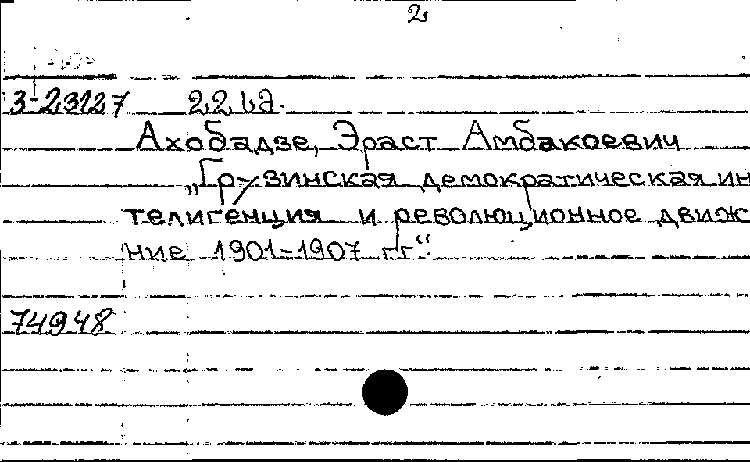 2
3-23127 22 ьд.
Ахобадзе, Эраст Амбакоевич
„Грузинская демократическая ин
телигенция и революционное движ
ние 1901-1907 гг“.
74948